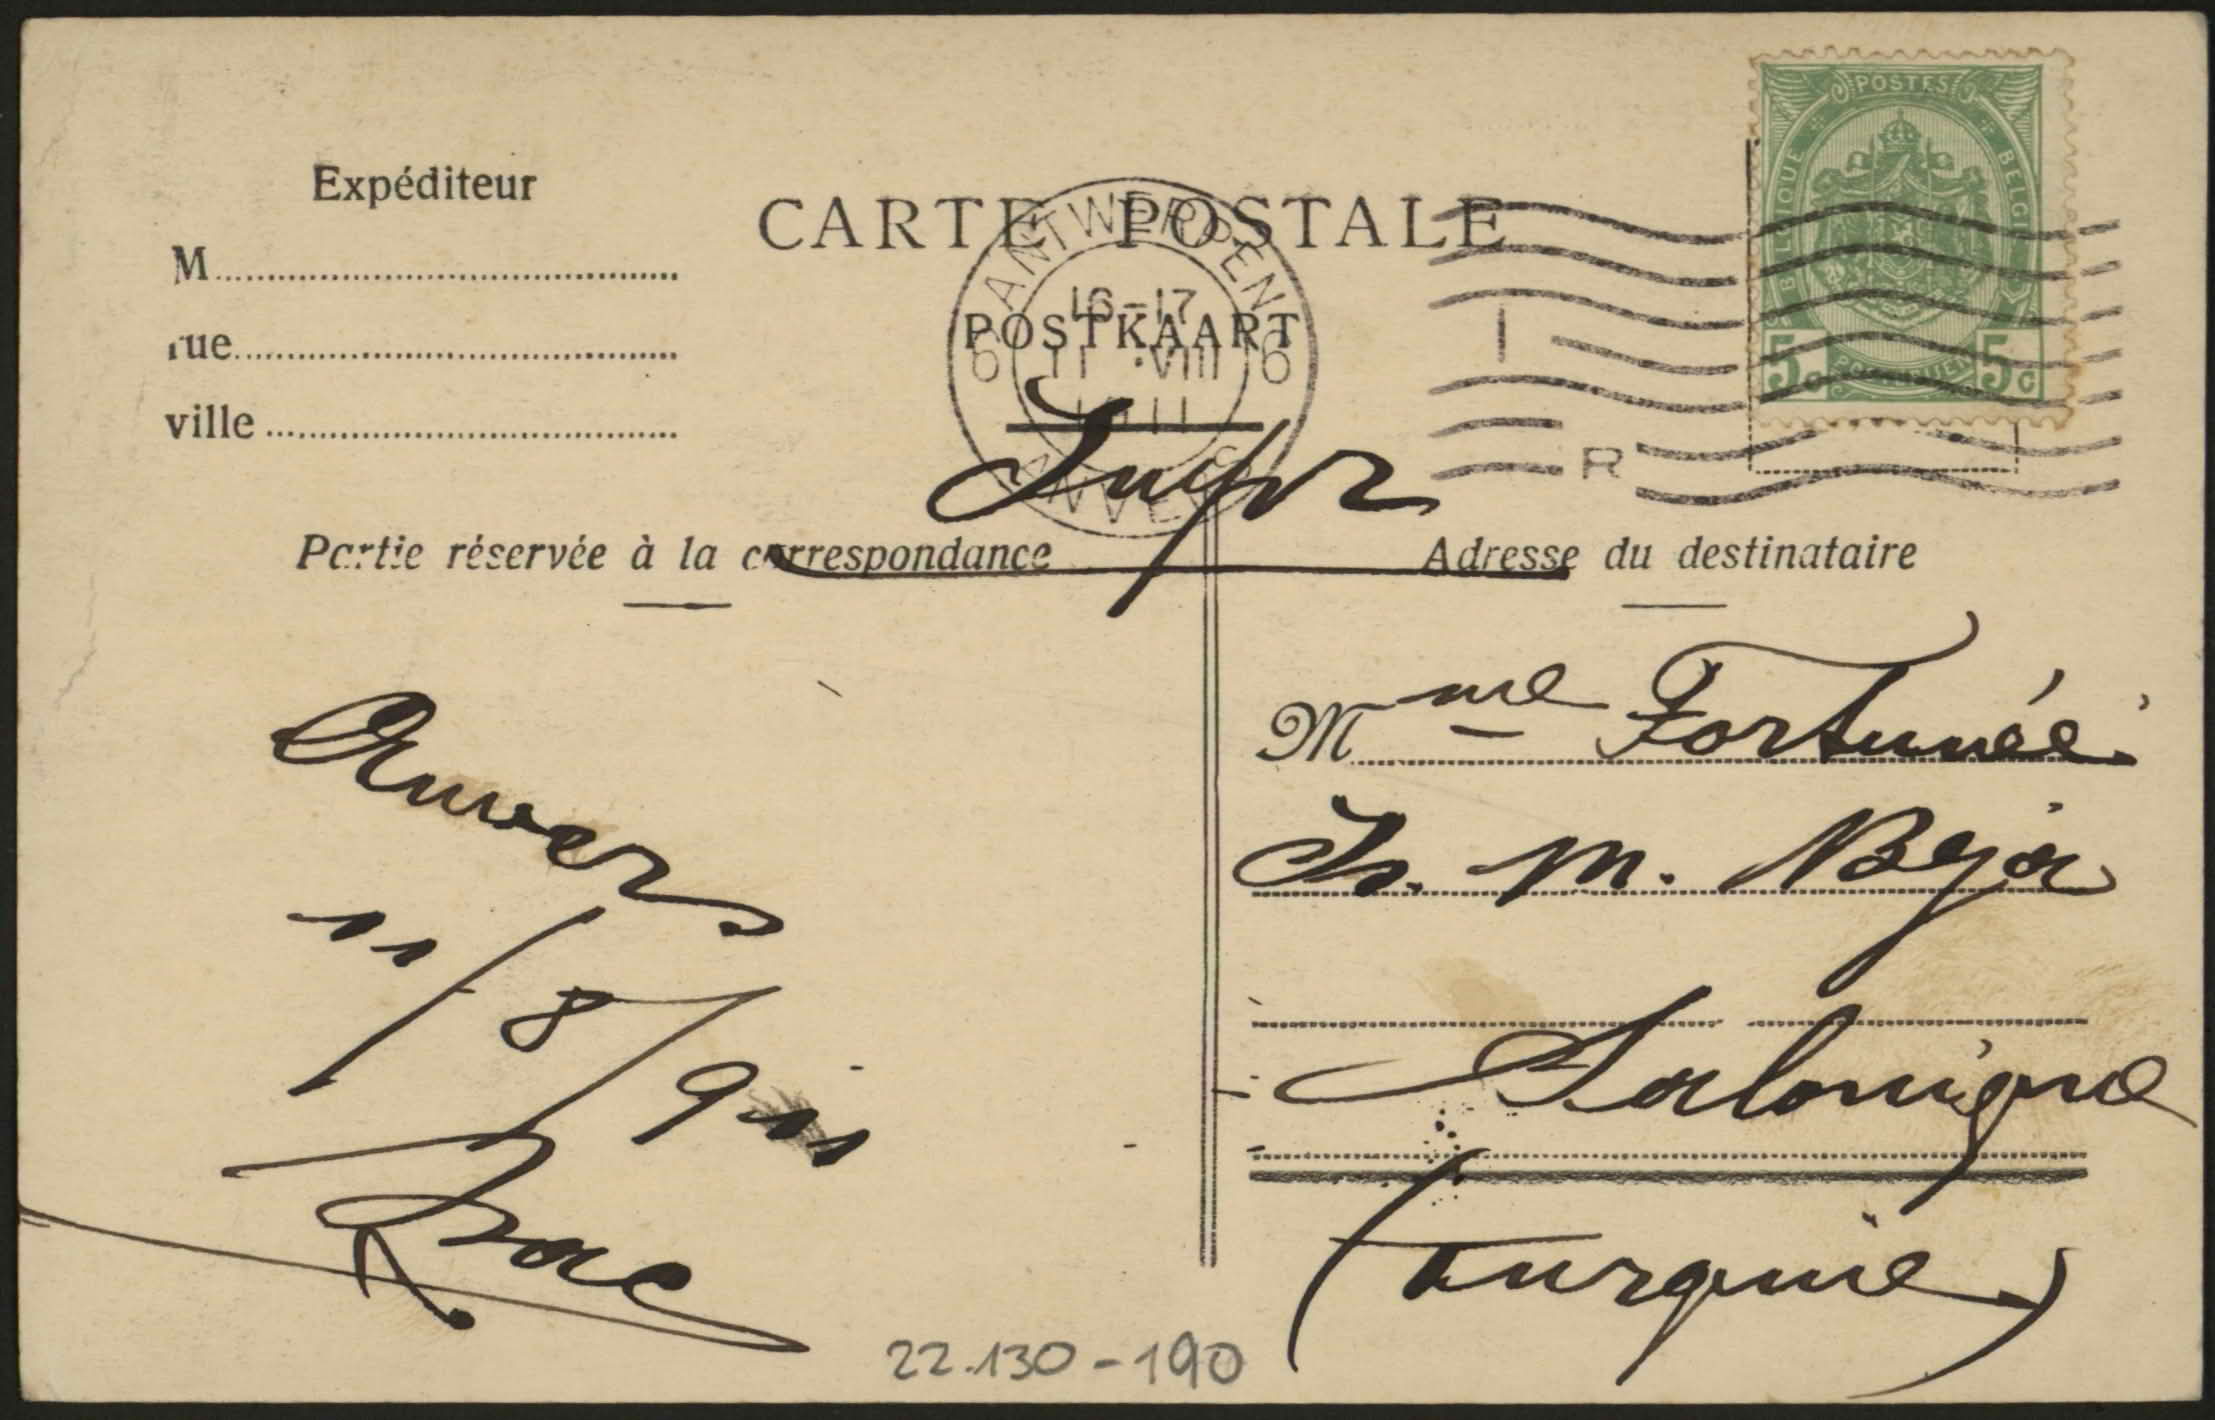 Expéditeur
M
rue
ville
CARTE POSTALE
POSTKAART
6 ANTWERPEN 6
16-17
11 VIII
1911
ANVERS
POSTES
BELGIQUE
BELGIË
5c
POSTERIJEN
5c
R
Partie réservée à la correspondance
Adresse du destinataire
Anvers
11/8/911
Isac
Mme Fortunée
Is. M. Beja
Salonique
(Turquie)
22.130-190